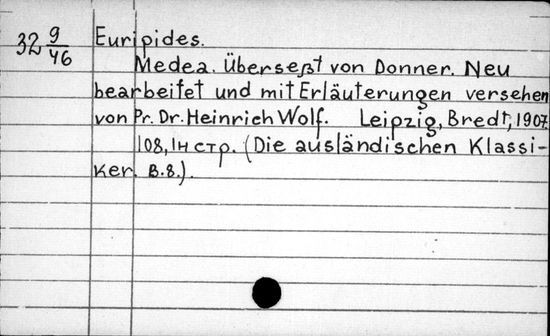 32 9/46
Euripides.
Medea. Überseßt von Donner. Neu
bearbeitet und mit Erläuterungen versehen
von Pr. Dr. Heinrich Wolf. Leipzig, Bredt, 1907
108, 1н стр. (Die ausländischen Klassi-
ker. B. 8.).